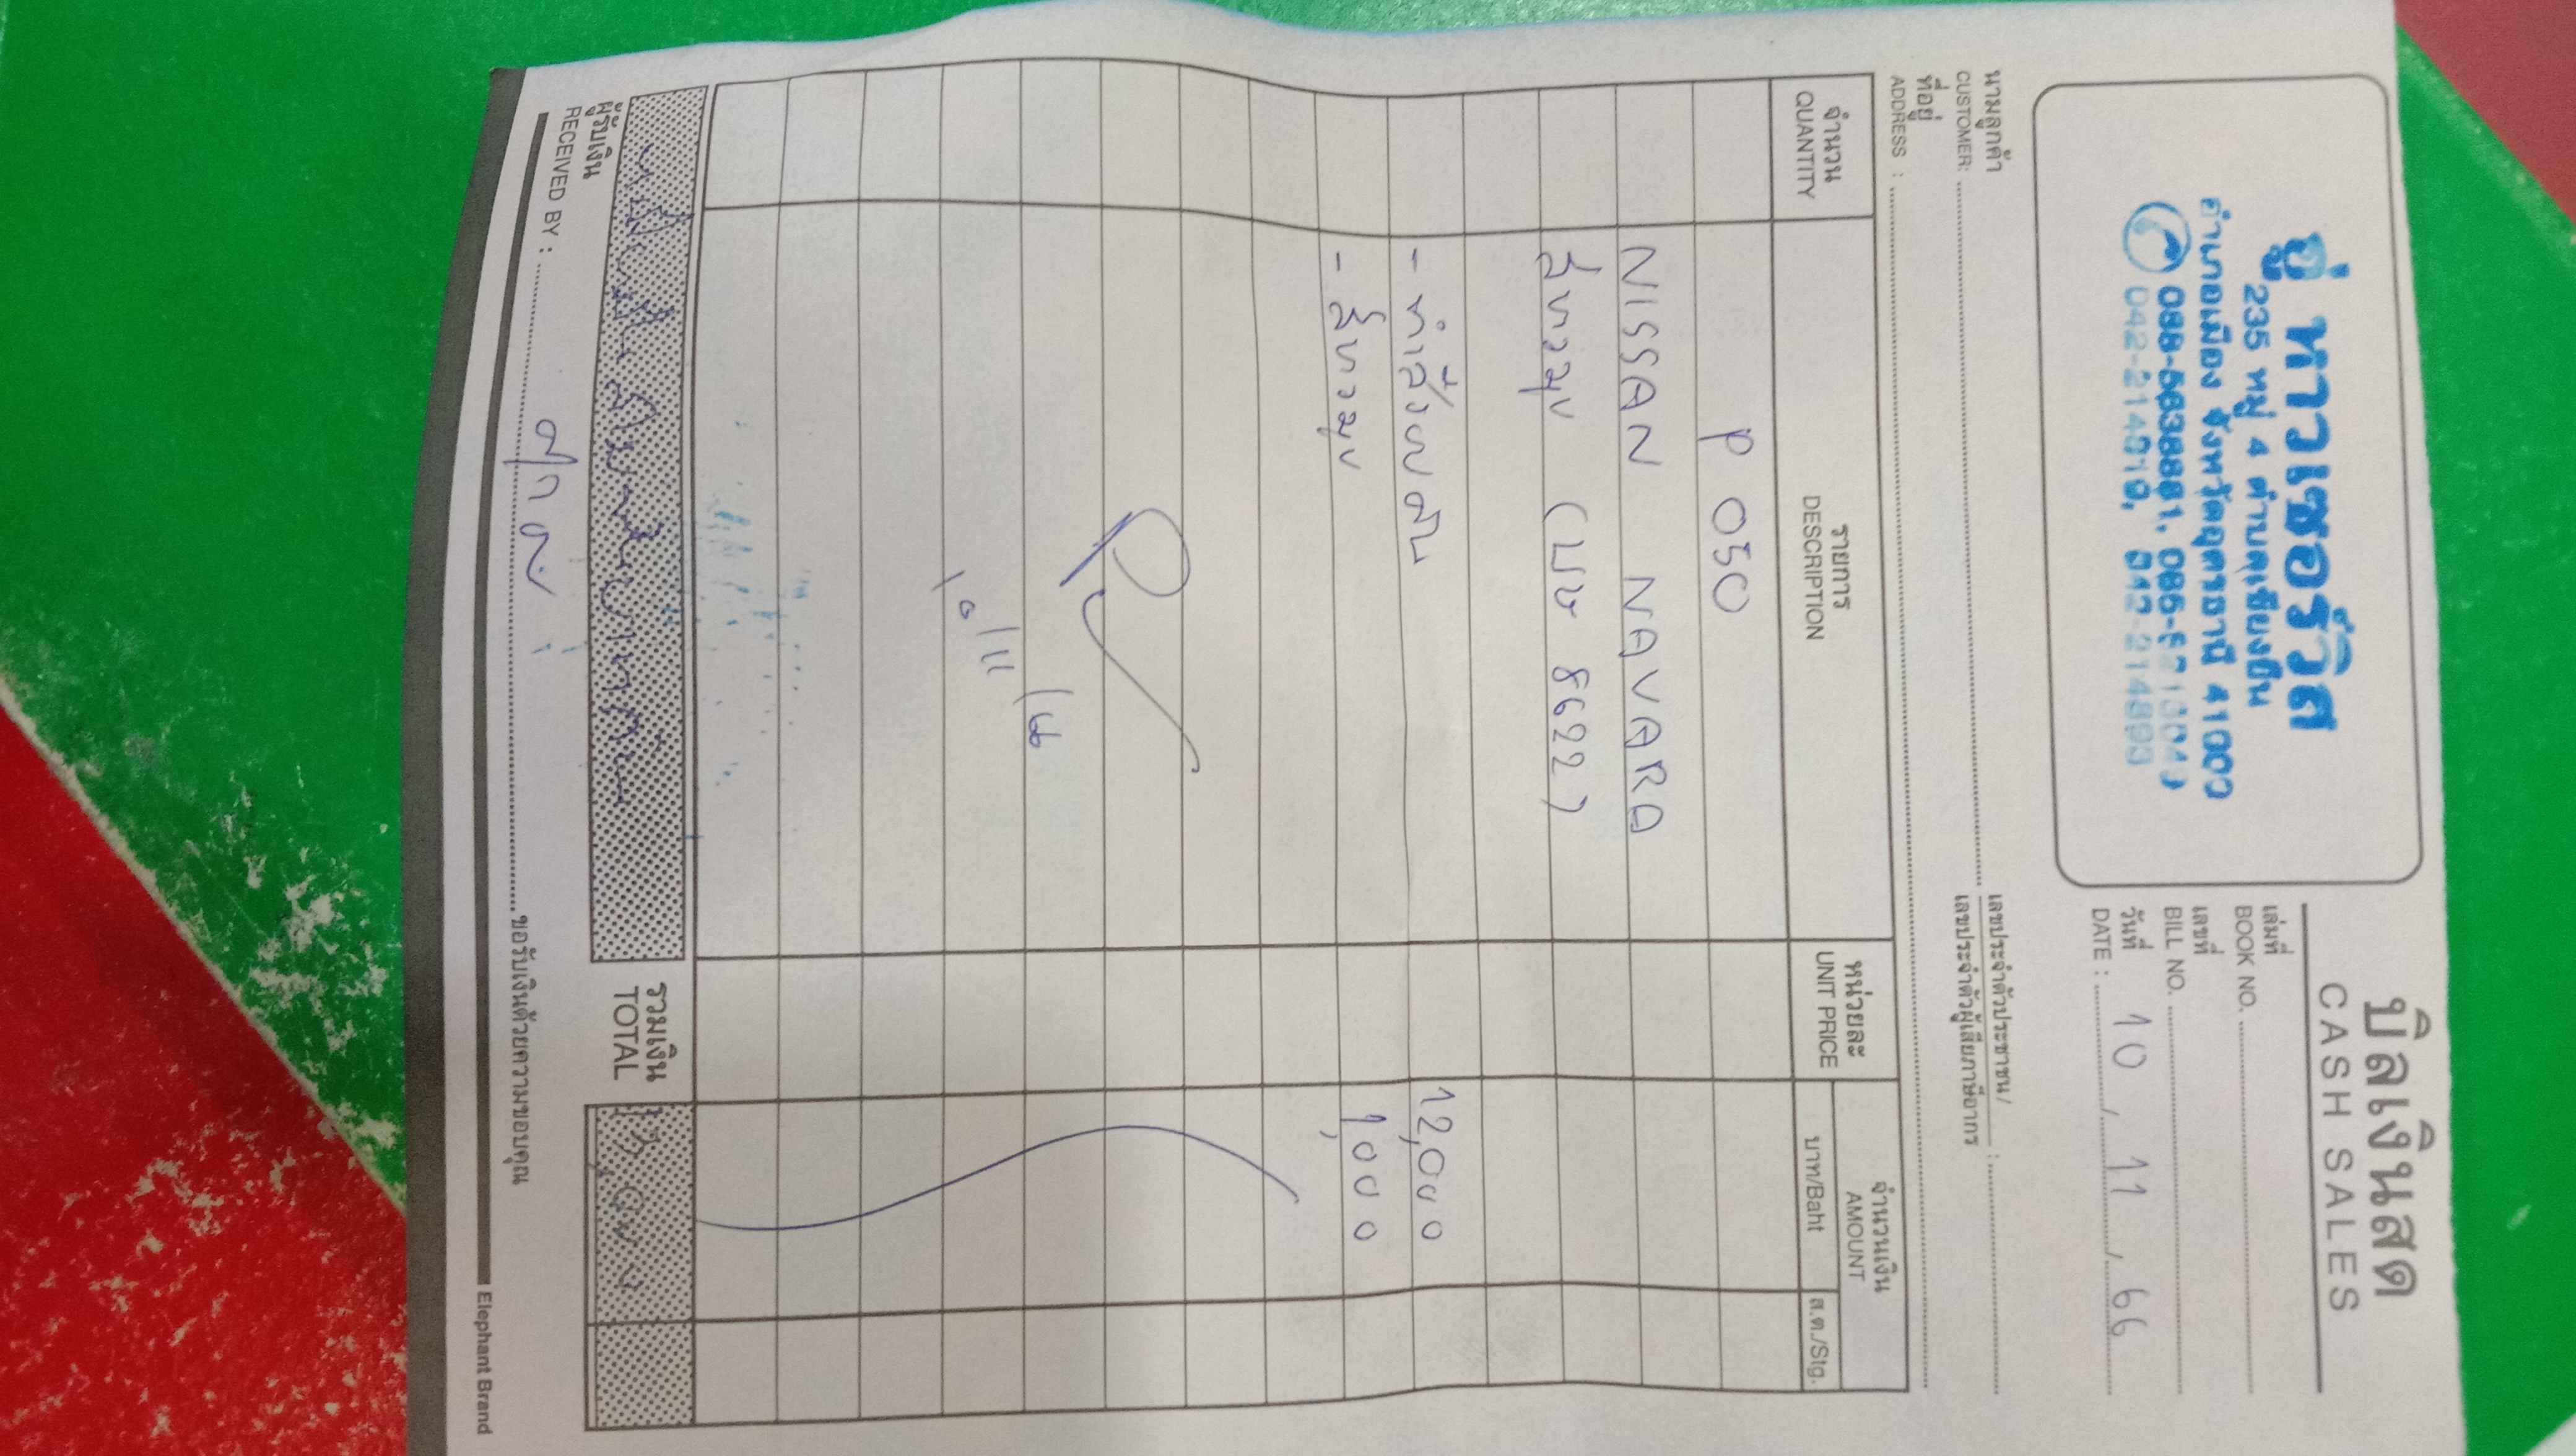 บิลเงินสด
CASH SALES
อู่ หาวเซอร์วิส
235 หมู่ 4 ตำบลเชียงยืน
อำเภอเมือง จังหวัดอุดรธานี 41000
042-214893
เล่มที่
BOOK NO.
เลขที่
BILL NO.
วันที่ 10 / 11 / 66
DATE :
นามลูกค้า
CUSTOMER:
เลขประจำตัวประชาชน/
เลขประจำตัวผู้เสียภาษีอากร :
ที่อยู่
ADDRESS :
จำนวน
QUANTITY
รายการ
DESCRIPTION
หน่วยละ
UNIT PRICE
จำนวนเงิน
AMOUNT
บาท/Baht
ส.ต./Stg.
P 050
NISSAN NAVARA
(บษ 8622)
12,000
1,000
10/11/66
รวมเงิน
TOTAL
ผู้รับเงิน
RECEIVED BY :
ขอรับเงินด้วยความขอบคุณ
Elephant Brand